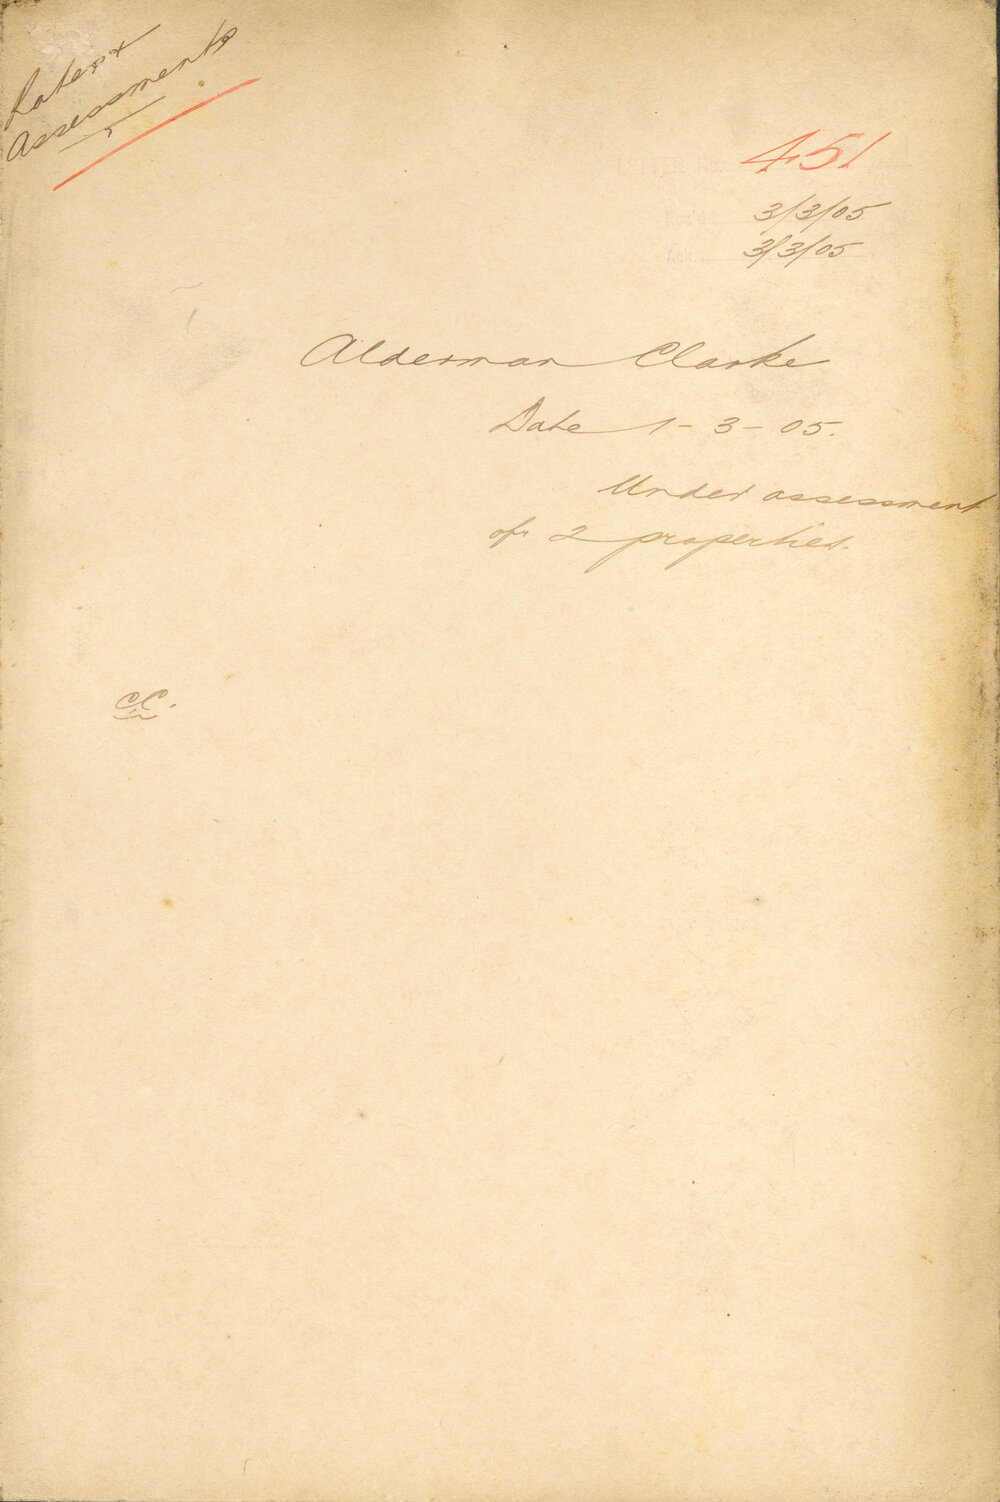 Rates &
Assessments
451
3/3/05
Ack. 3/3/05
Alderman Clarke
Date 1-3-05.
Under assessment
of 2 properties.
CC.